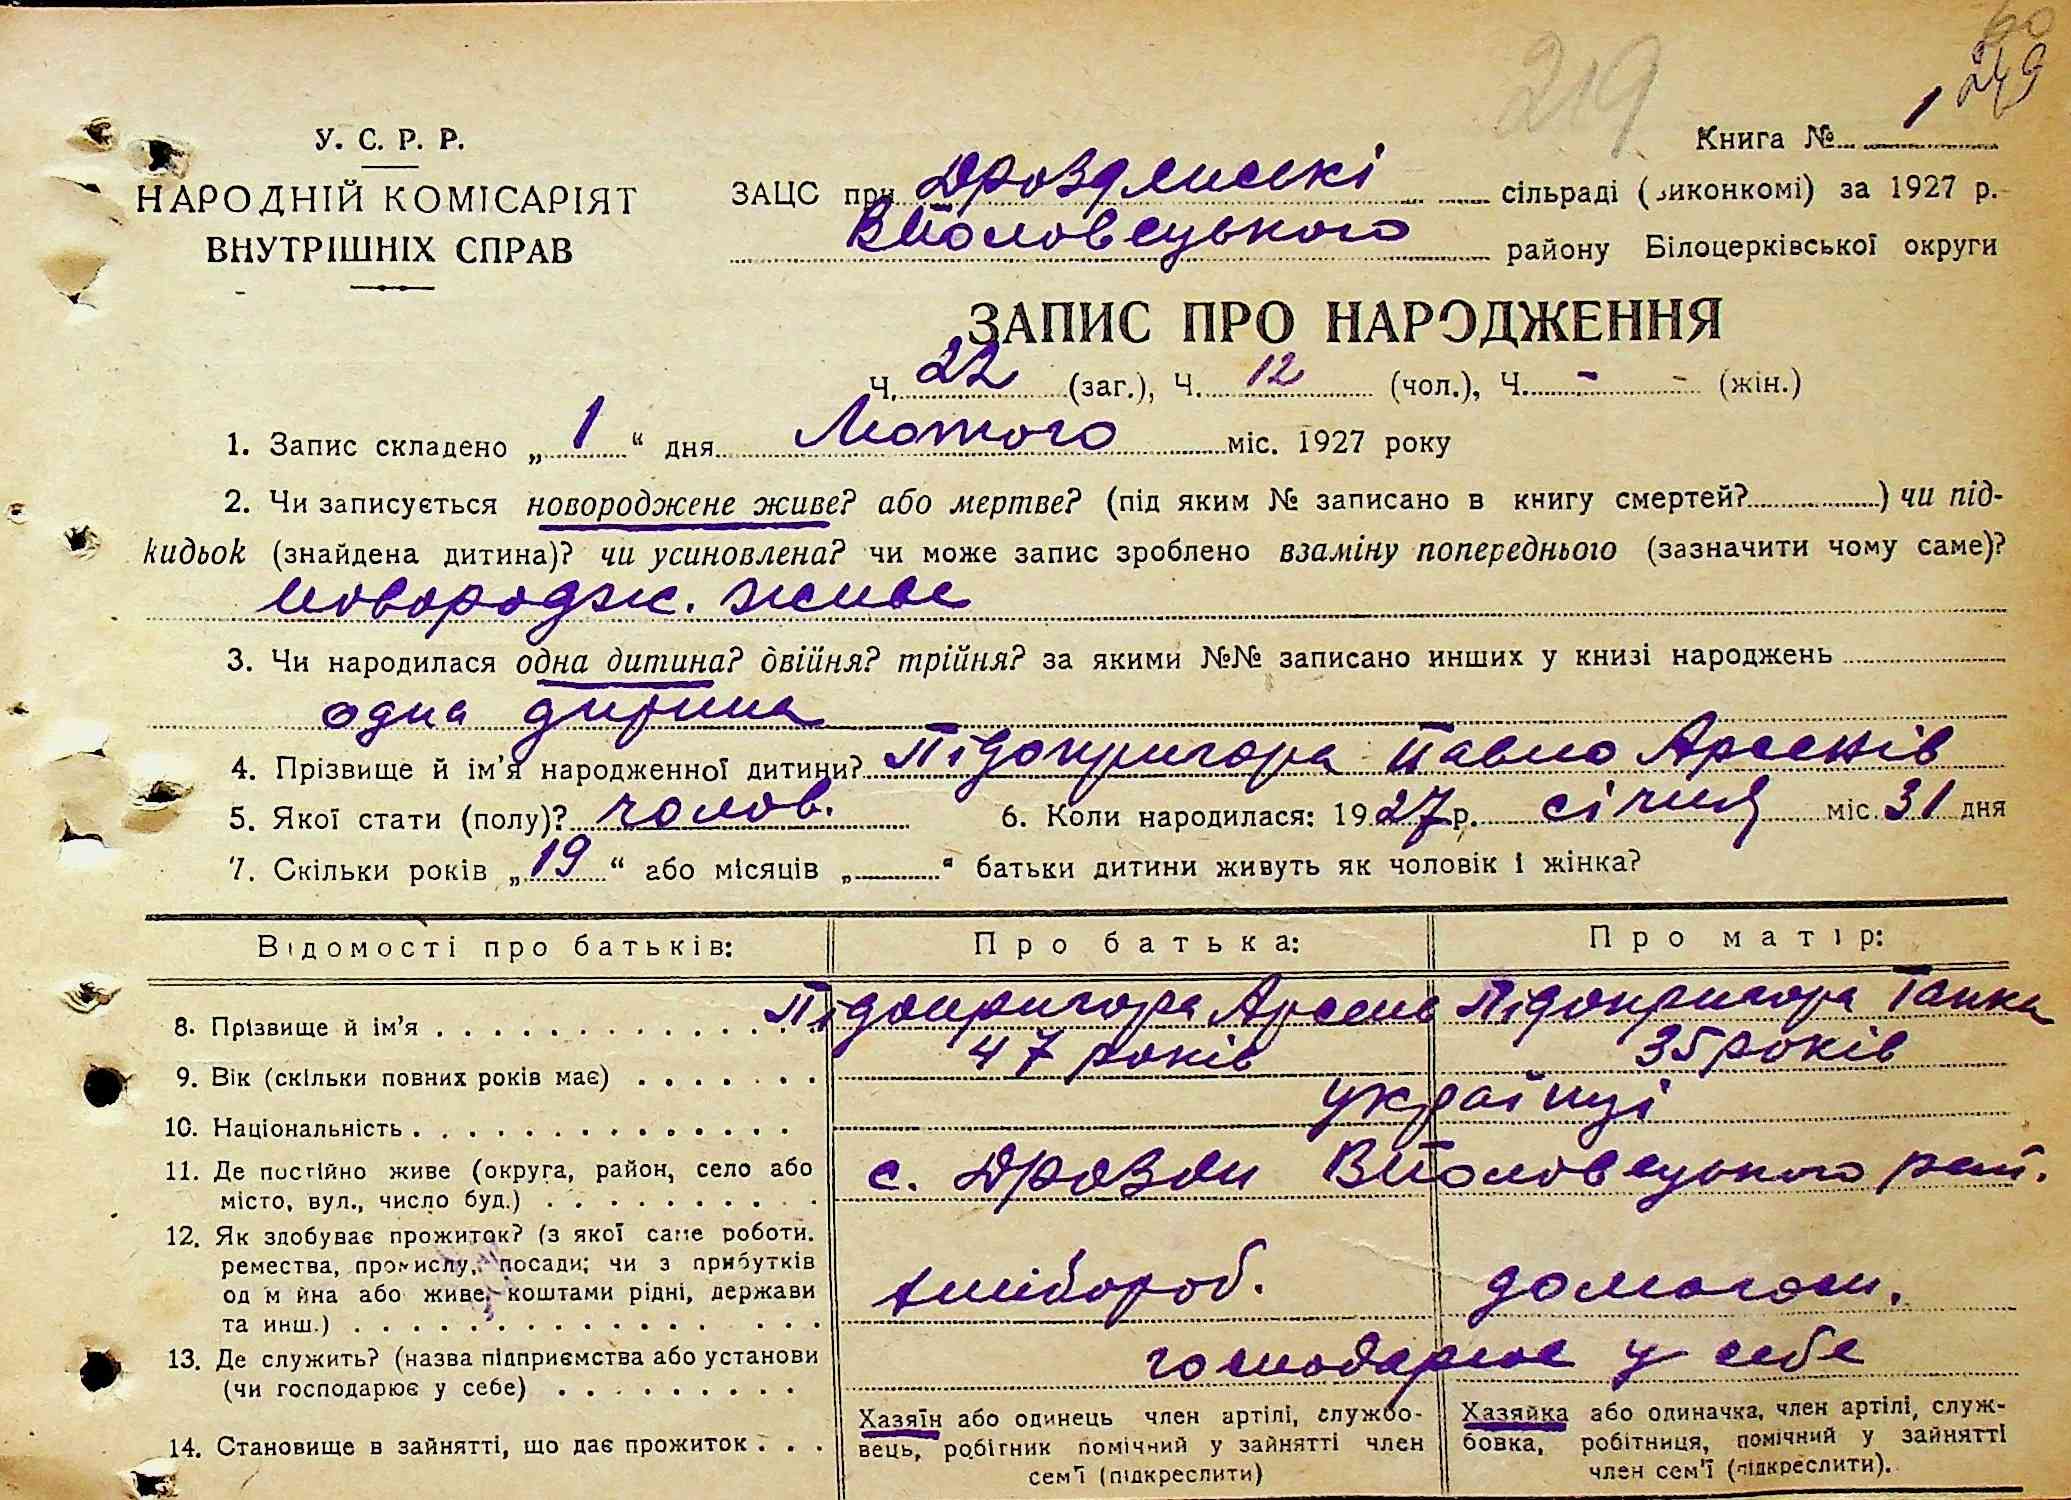 60
249
219
Книга № 1
У. С. Р. Р.
НАРОДНІЙ КОМІСАРІЯТ
ВНУТРІШНІХ СПРАВ
ЗАЦС при Дроздянські сільраді (виконкомі) за 1927 р.
ВПоловецького району Білоцерківської округи
ЗАПИС ПРО НАРОДЖЕННЯ
Ч. 22 (заг.), Ч. 12 (чол.), Ч. - - (жін.)
1. Запис складено „ 1 “ дня Лютого міс. 1927 року
2. Чи записується новороджене живе? або мертве? (під яким № записано в книгу смертей? ) чи під-
кидьок (знайдена дитина)? чи усиновлена? чи може запис зроблено взаміну попереднього (зазначити чому саме)?
новородж. живе
3. Чи народилася одна дитина? двійня? трійня? за якими №№ записано инших у книзі народжень
одна дитина
4. Прізвище й ім'я народженної дитини? Підопригора Павло Арсенів
5. Якої стати (полу)? чолов. 6. Коли народилася: 1927 р. січня міс. 31 дня
7. Скільки років „ 19 “ або місяців „ “ батьки дитини живуть як чоловік і жінка?
Відомості про батьків: Про батька: Про матір:
8. Прізвище й ім'я . . . . . . . . . . . . . Підопригора Арсень Підопригора Ганка
9. Вік (скільки повних років має) . . . . . . . 47 років 35 років
10. Національність . . . . . . . . . . . . . . українці
11. Де постійно живе (округа, район, село або
місто, вул., число буд.) . . . . . . . . . . с. Дрозди ВПоловецького рай.
12. Як здобуває прожиток? (з якої саме роботи,
ремества, промислу, посади; чи з прибутків
од майна або живе коштами рідні, держави
та инш.) . . . . . . . . . . . . . . . . хлібороб. домогосп.
13. Де служить? (назва підприємства або установи
(чи господарює у себе) . . . . . . . . . господарює у себе
14. Становище в зайнятті, що дає прожиток . . .
Хазяїн або одинець член артілі, службо-
вець, робітник помічний у зайнятті член
сем'ї (підкреслити)
Хазяйка або одиначка, член артілі, служ-
бовка, робітниця, помічний у зайнятті
член сем'ї (підкреслити).